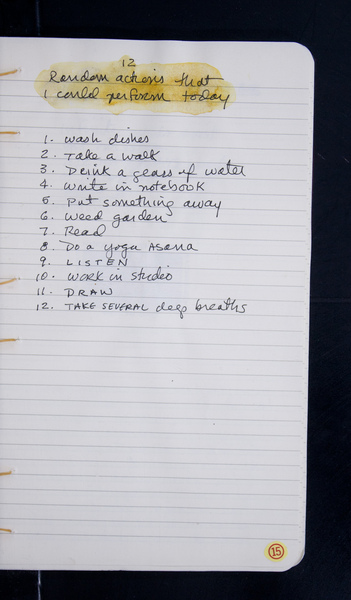 12
Random actions that
I could perform today
1. wash dishes
2. Take a walk
3. Drink a glass of water
4. write in notebook
5. Put something away
6. weed garden
7. Read
8. Do a yoga Asana
9. LISTEN
10. work in studio
11. DRAW
12. TAKE SEVERAL deep breaths
15